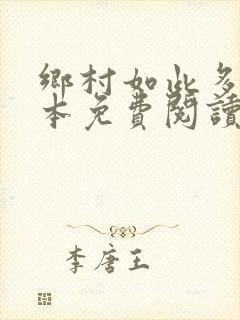 鄉村如此多
本免費閱讀
李唐王